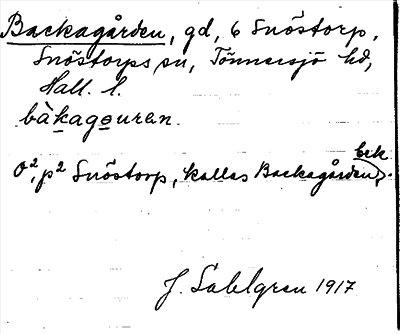 Backagården, gd, 6 Snöstorp,
Snöstorps sn, Tönnersjö hd,
Hall. l.
bàkagɷuren.
O², p² Snöstorp, kallas Backagården, bek.
J. Sahlgren 1917